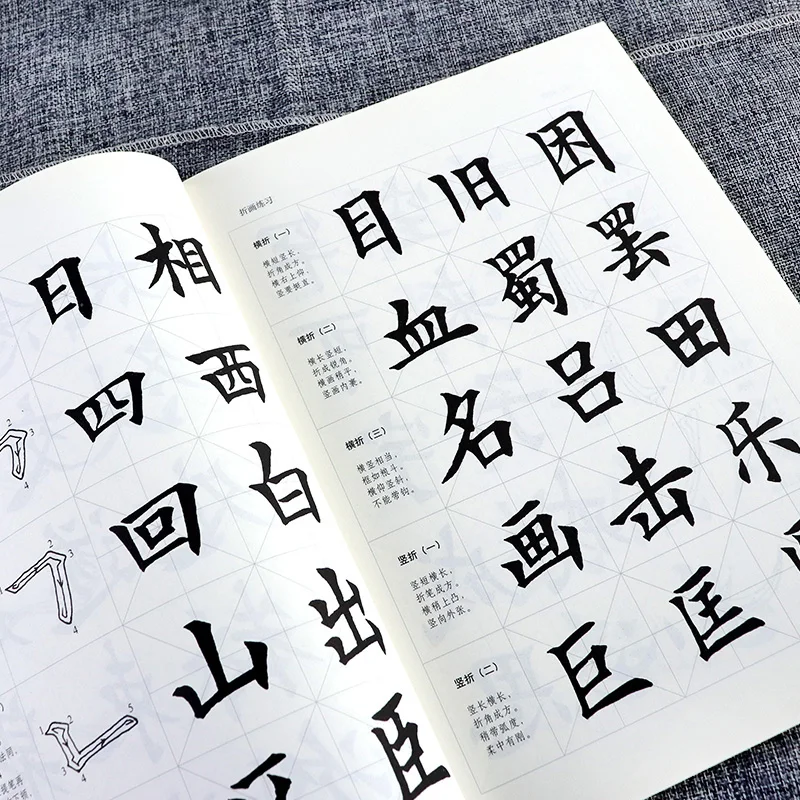 日相
四西
回白
山出
臣
法同，
提笔再
折画练习
横折（一）
横短竖长，
折角成方。
横右上仰，
竖要挺直。
目旧困
横折（二）
横长竖短，
折成锐角。
横画稍平，
竖画内裹。
血蜀罢
横折（三）
横竖相当，
框如粮斗。
横仰竖斜，
不能带钩。
名吕田
竖折（一）
竖短横长，
折笔成方。
横稍上凸，
竖向外张。
画击乐
竖折（二）
竖长横长，
折角成方。
稍带弧度，
柔中有刚。
巨匡